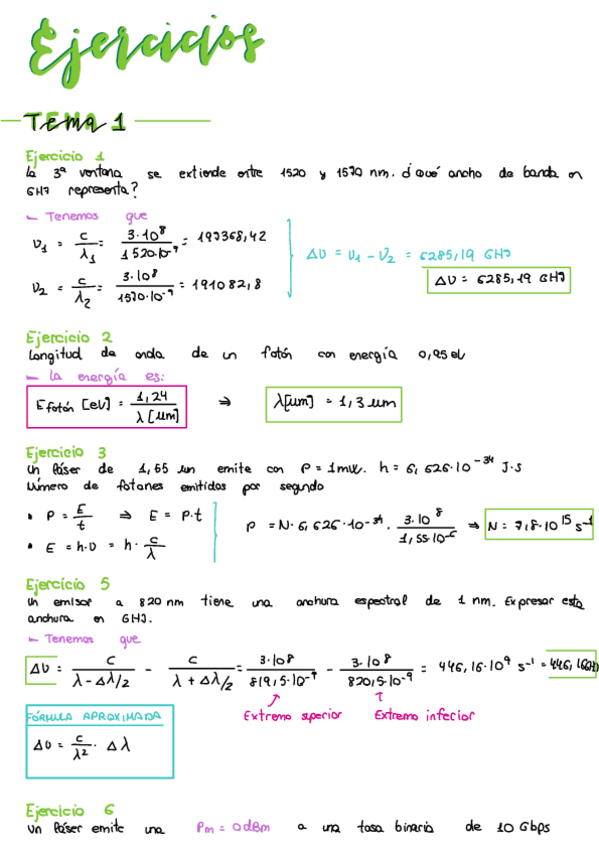 Ejercicios
TEMA 1
Ejercicio 1
la 3ª ventana se extiende entre 1520 y 1570 nm. ¿Qué ancho de banda en
GHz representa?
– Tenemos que
υ₁ = c/λ₁ = 3·10⁸/1520·10⁻⁹ = 197368,42
υ₂ = c/λ₂ = 3·10⁸/1570·10⁻⁹ = 191082,8
Δυ = υ₁ – υ₂ = 6285,19 GHz
Δυ = 6285,19 GHz
Ejercicio 2
Longitud de onda de un fotón con energía 0,95 eV
– la energía es:
E fotón [eV] = 1,24/λ [um] ⇒ λ[um] = 1,3 um
Ejercicio 3
Un láser de 1,55 um emite con P = 1mW. h = 6,626·10⁻³⁴ J·s
Número de fotones emitidos por segundo
• P = E/t ⇒ E = P·t
• E = h·υ = h · c/λ
P = N·6,626·10⁻³⁴ · 3·10⁸/1,55·10⁻⁶ ⇒ N = 7,8·10¹⁵ s⁻¹
Ejercicio 5
Un emisor a 820 nm tiene una anchura espectral de 1 nm. Expresar esta
anchura en GHz.
– Tenemos que
Δυ = c/λ – Δλ/2 – c/λ + Δλ/2 = 3·10⁸/819,5·10⁻⁹ – 3·10⁸/820,5·10⁻⁹ = 446,16·10⁹ s⁻¹ = 446,16GHz
Extremo superior Extremo inferior
FÓRMULA APROXIMADA
Δυ = c/λ² · Δλ
Ejercicio 6
Un láser emite una Pm = 0dBm a una tasa binaria de 10 Gbps